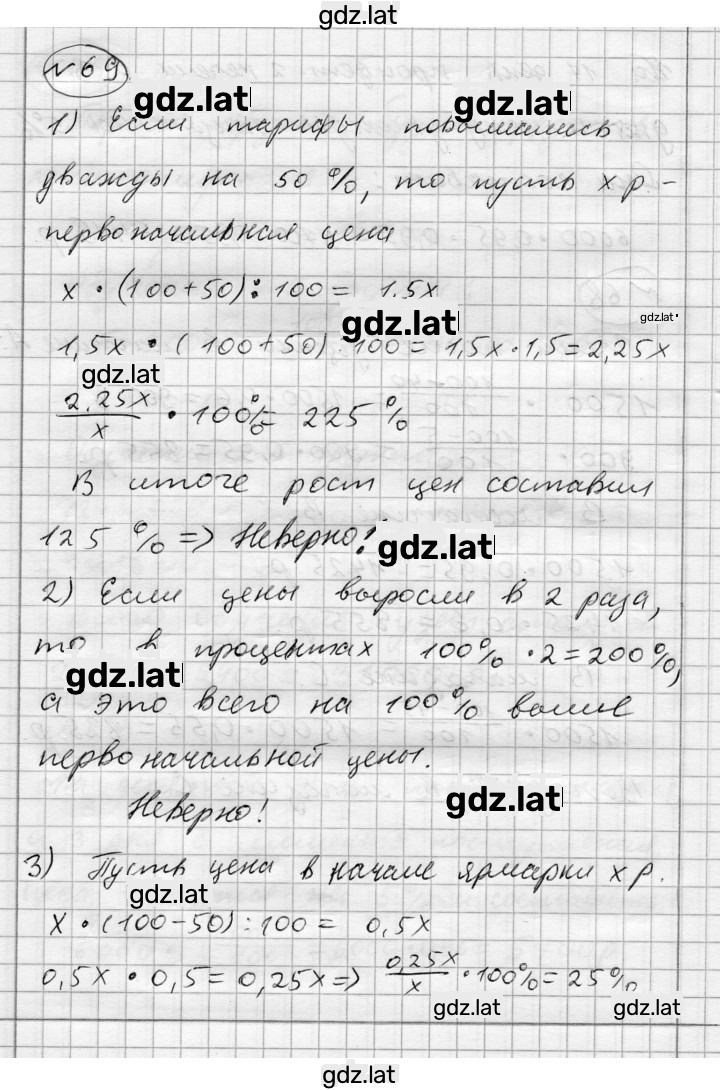 gdz.lat
№69
gdz.lat gdz.lat
1) Если тарифы повышались
дважды на 50%, то пусть x р. –
первоначальная цена
x · (100+50) : 100 = 1,5x
gdz.lat gdz.lat
1,5x · (100+50) 100 = 1,5x · 1,5 = 2,25x
gdz.lat
2,25x/x · 100% = 225%
В итоге рост цен составил
125% => Неверно!
gdz.lat
2) Если цены выросли в 2 раза,
то в процентах 100% · 2 = 200%,
gdz.lat
а это всего на 100% более
первоначальной цены.
Неверно!
gdz.lat
3) Пусть цена в начале ярмарки x р.
gdz.lat
x · (100-50) : 100 = 0,5x
0,5x · 0,5 = 0,25x => 0,25x/x · 100% = 25%
gdz.lat gdz.lat
gdz.lat